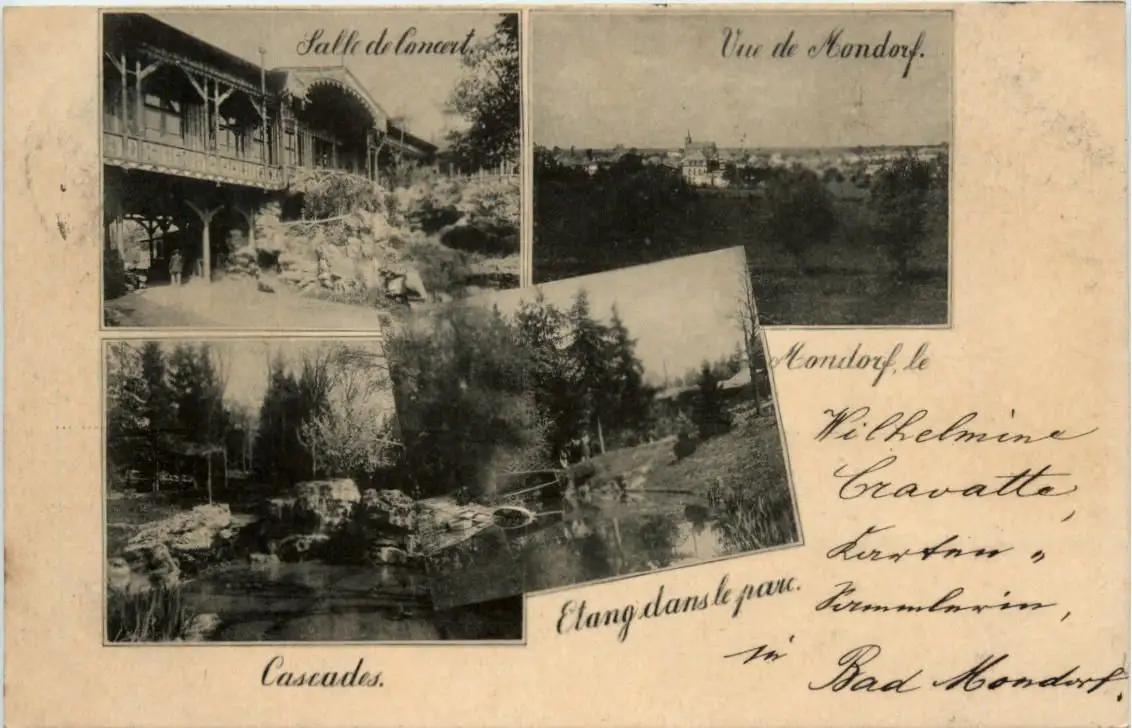 Salle de Concert.
Vue de Mondorf.
Mondorf, le
Wilhelmine
Cravatte,
Karten „
Sammlerin,
in Bad Mondorf.
Etang dans le parc.
Cascades.